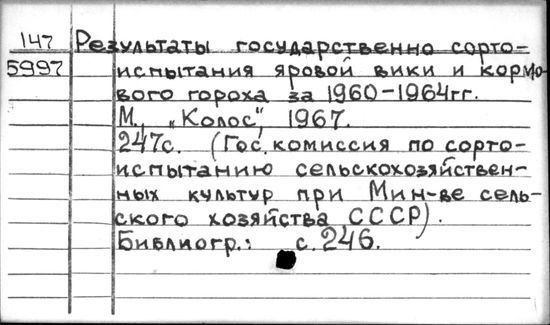 147 Результаты государственно сорто-
5997 испытания яровой вики и кормо-
вого гороха за 1960-1964гг.
М., „Колос", 1967.
247с. (Гос. комиссия по сорто-
испытанию сельскохозяйствен-
ных культур при Мин-ве сель-
ского хозяйства СССР).
Библиогр.: с. 246.